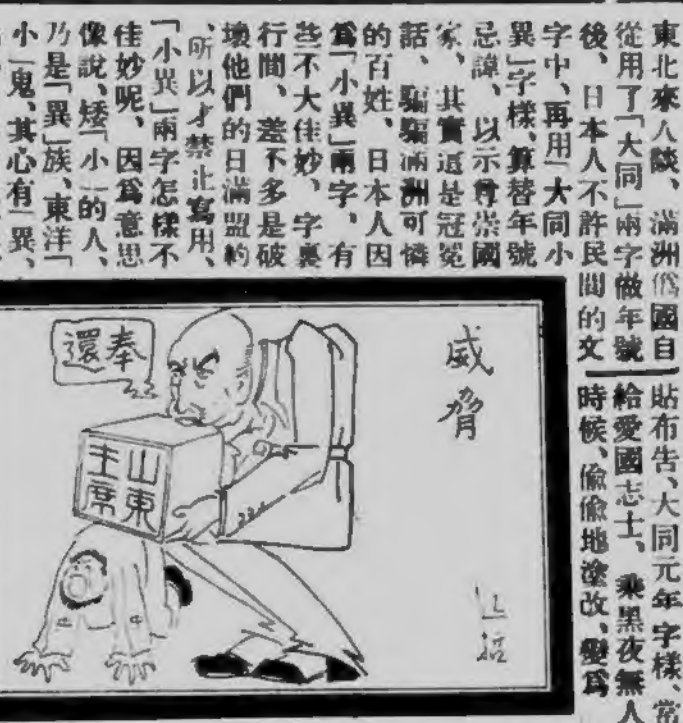 東北來人談、滿洲僞國自
從用了「大同」兩字做年號
後、日本人不許民間的文
字中、再用「大同小
異」字樣、算替年號
忌諱、以示尊崇國
家、其實這是冠冕
話、騙騙滿洲可憐
的百姓、日本人因
爲「小異」兩字、有
些不大佳妙、字裏
行間、差不多是破
壞他們的日滿盟約
、所以才禁止寫用、
「小異」兩字怎樣不
佳妙呢、因爲意思
像說、矮「小」的人、
乃是「異」族、東洋「
小」鬼、其心有「異、
貼布告、大同元年字樣、當
給愛國志士、乘黑夜無人
時候、偸偸地塗改、變爲
威脅
奉還
山東
主席